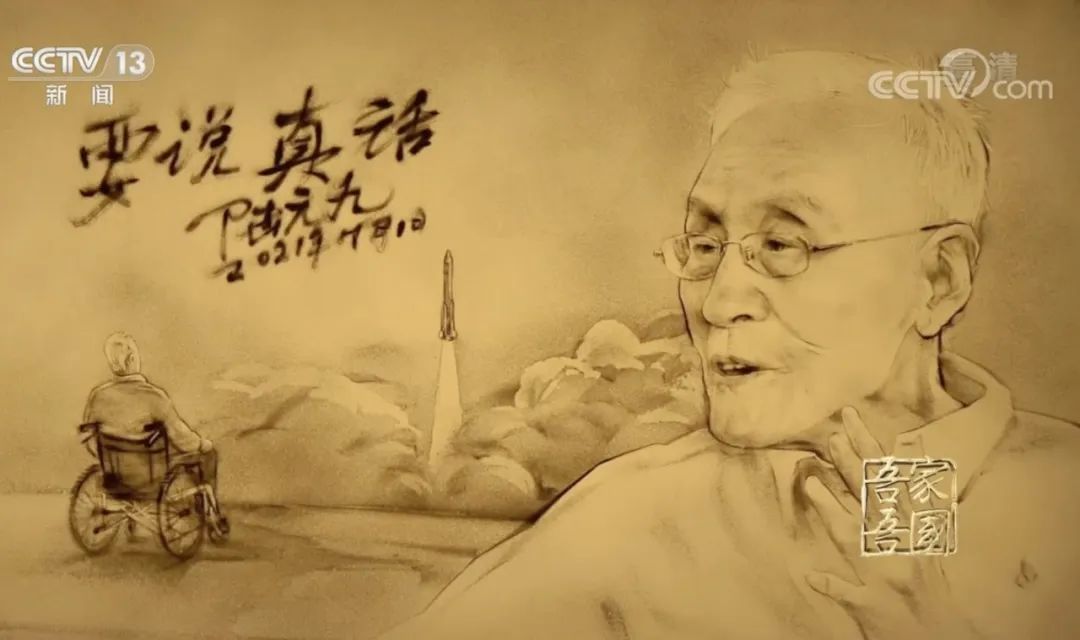 CCTV 13
新闻
高清
CCTV.com
要说真话
陆元九
2021年7月1日
吾家
吾国